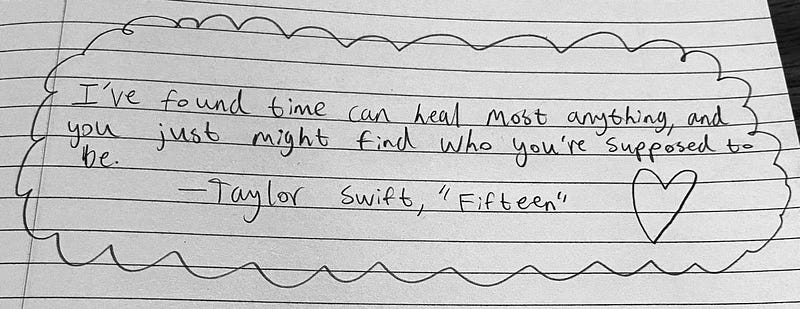 I've found time can heal most anything, and
you just might find who you're supposed to
be.
—Taylor Swift, "Fifteen"